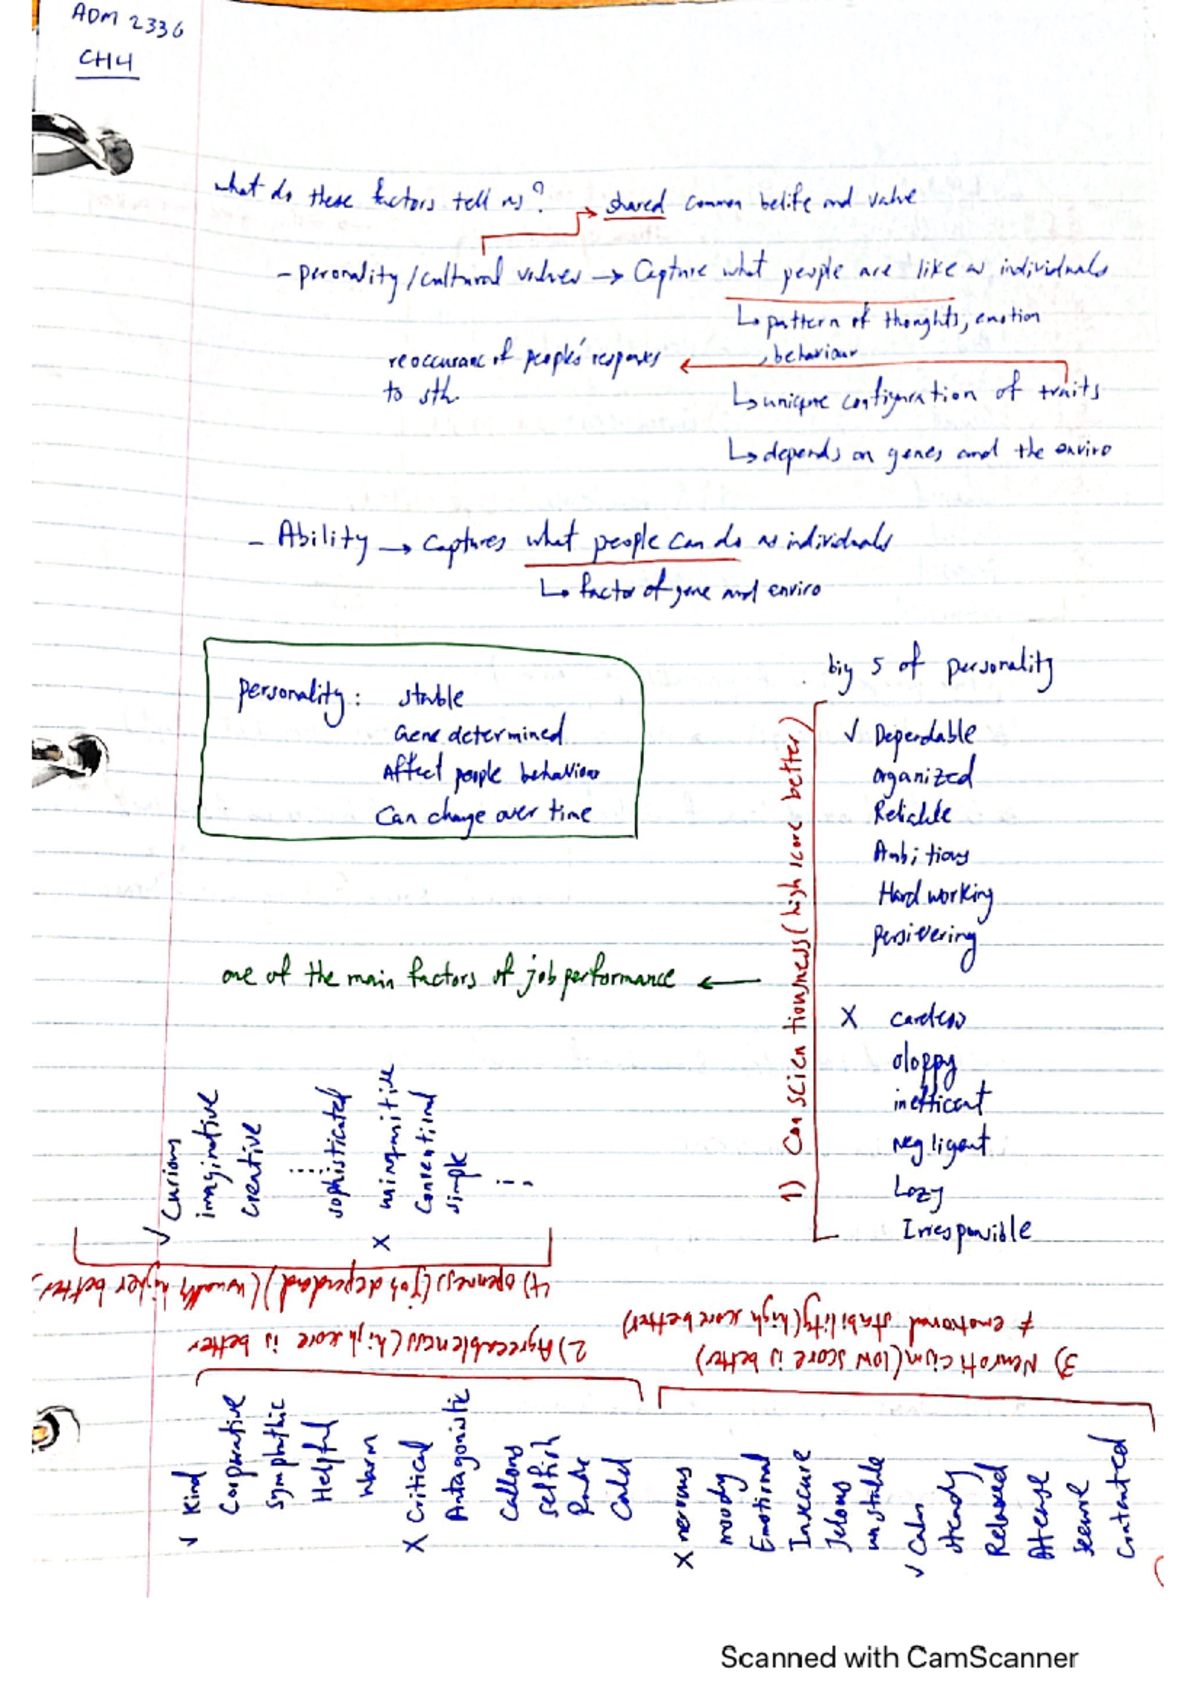 ADM 2336
CH4
what do these factors tell us?
shared common belife and value
- peronality/cultural values → Capture what people are like as individuals
↳ pattern of thoughts, emotion
, behaviour
reoccuranc of people's responses
to sth.
↳ unique configuration of traits
↳ depends on genes and the enviro
- Ability → captures what people can do as individuals
↳ factor of gene and enviro
personality: stable
Gene determined
Affect people behaviour
Can change over time
big 5 of personality
1) Conscientiousness (high score better)
✓ Dependable
organized
Reliable
Ambitious
Hard working
persivering
one of the main factors of job performance ←
X careless
sloppy
inefficent
negligent
Lazy
Irresponsible
4) openness (Job dependand) (usually higher better)
✓ Curious
imaginative
creative
...
sophisticated
X
Conventional
simple
...
2) Agreeableness (high score is better
✓ Kind
Corporative
sympathic
Helpful
warm
X Critical
Antagonistic
Callous
selfish
Rude
Cold
3) Neuroticism (low score is better)
≠ emotional stability (high score better)
X nervous
moody
Emotional
Insecure
Jelous
unstable
✓ Calm
steady
Relaxed
At ease
secure
Contented
Scanned with CamScanner